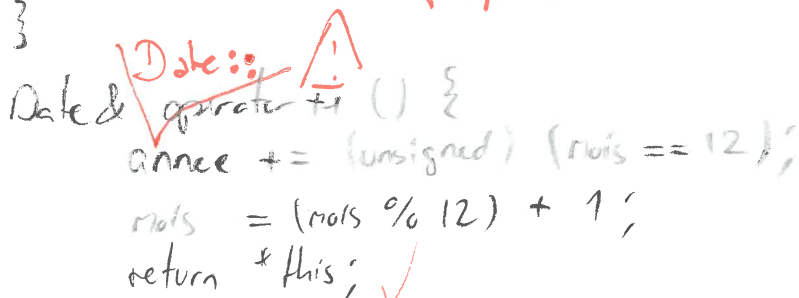 }
Date::
!
Date& operator ++ () {
annee += (unsigned) (mois == 12);
mois = (mois % 12) + 1;
return *this;